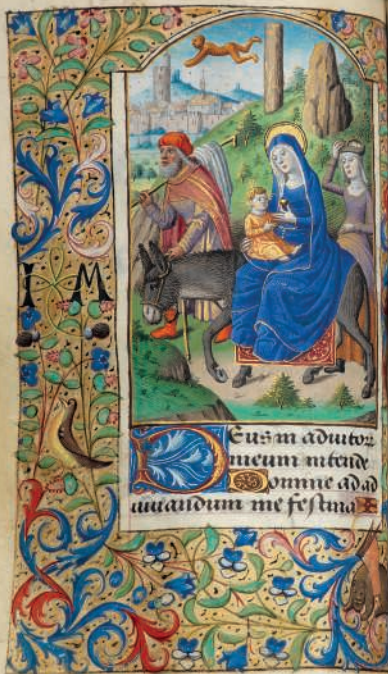 I M
Deus in adiutor
meum intende
Domine ad ad
iuuandum me festina